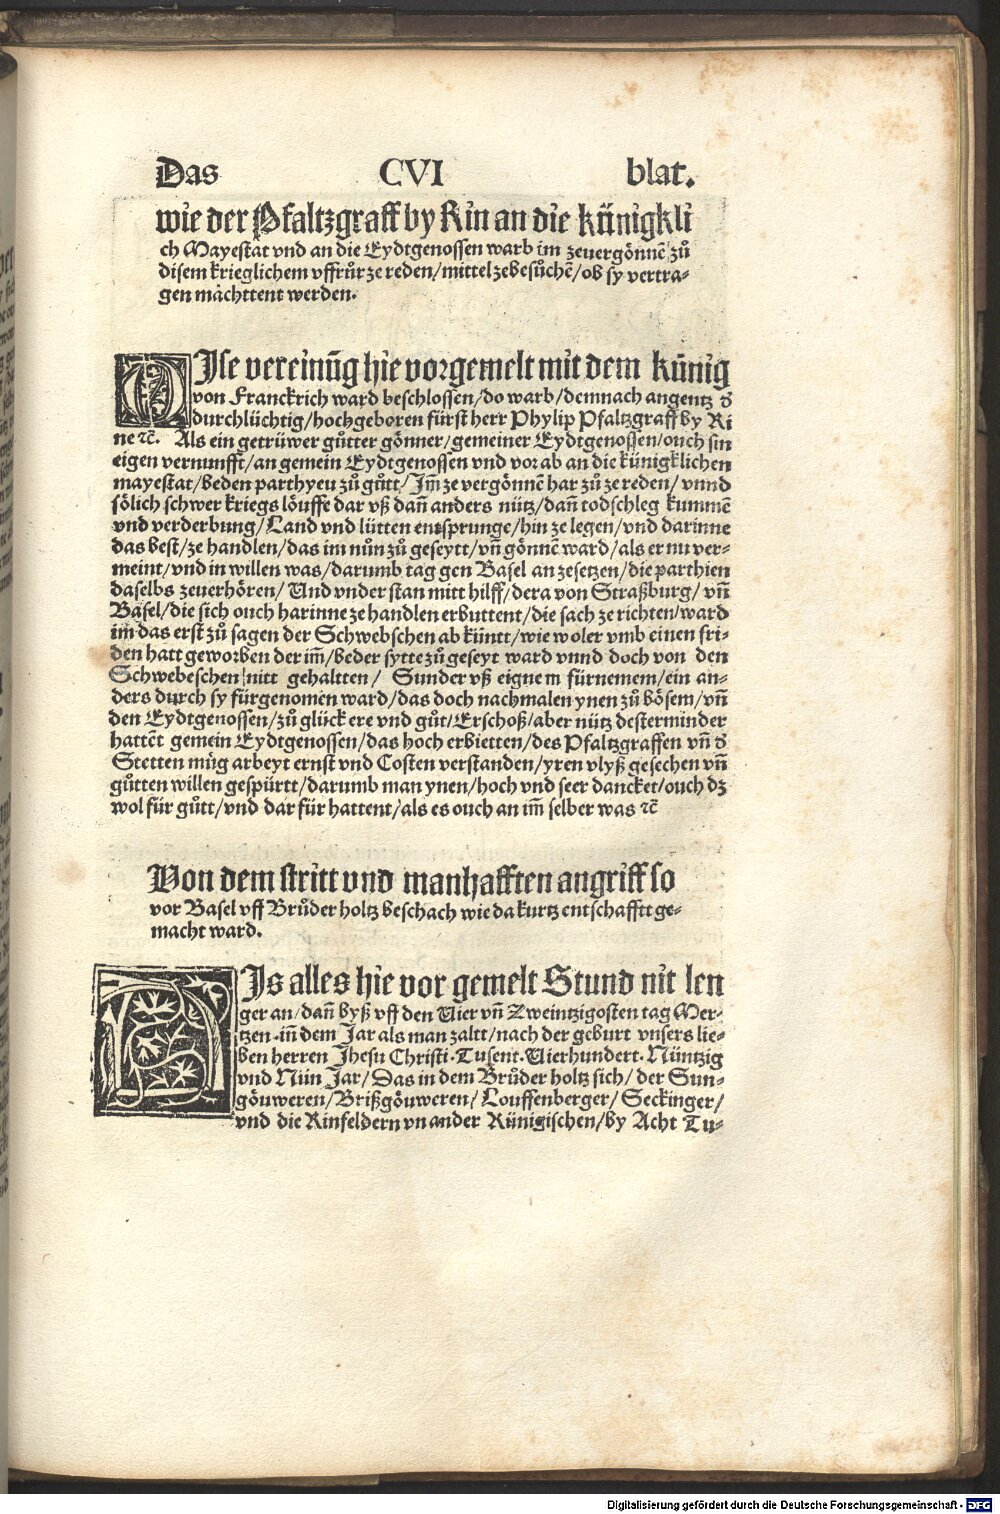 Das CVI blat.
wie der Pfaltzgraff by Rin an die künigkli
ch Mayestat vnd an die Eydtgenossen warb im zeuergönnē zuͦ
disem krieglichem vffruͦr ze reden/mittel zebesuͦchē/ob sy vertra-
gen maͤchttent werden.
DJse vereinūg hie vorgemelt mit dem künig
von Franckrich ward beschlossen/do warb/demnach angentz d̕
durchlüchtig/hochgeboren fürst herr Phylip Pfaltzgraff by Ri
ne ꝛc̄. Als ein getrüwer guͦtter gönner/gemeiner Eydtgenossen/ouch sin
eigen vernunfft/an gemein Eydtgenossen vnd vor ab an die künigklichen
mayestat/beden parthyeu zuͦ guͦtt/Jm̄ ze vergönnē har zuͦ ze reden/ vnnd
sölich schwer kriegs löuffe dar vß dañ anders nütz/dañ todschleg kummē
vnd verderbung/Land vnd lütten entsprunge/hin ze legen/vnd darinne
das best/ze handlen/das im nuͦn zuͦ geseytt/vñ gönnē ward/als er nu ver-
meint/vnd in willen was/darumb tag gen Basel an zesetzen/die parthien
daselbs zeuerhören/Vnd vnder stan mitt hilff/dera von Straßburg/vñ
Basel/die sich ouch harinne ze handlen erbuttent/die sach ze richten/ward
im̄ das erst zuͦ sagen der Schwebschen ab künt/wie wol er vmb einen fri-
den hatt geworben der im̄/beder sytte zuͦ geseyt ward vnnd doch von den
Schwebeschen nitt gehaltten/ Sunder vß eignem fürnemem/ein an-
ders durch sy fürgenomen ward/das doch nachmalen ynen zuͦ bösem/vñ
den Eydtgenossen/zuͦ glück ere vnd guͦt/Erschoß/aber nütz desterminder
hattēt gemein Eydtgenossen/das hoch erbietten/des Pfaltzgraffen vñ d̕
Stetten müg arbeyt ernst vnd Costen verstanden/yren vlyß gesechen vñ
guͦtten willen gespürtt/darumb man ynen/hoch vnd seer dancket/ouch dz
wol für guͦtt/vnd dar für hattent/als es ouch an im̄ selber was ꝛc̄
Von dem stritt vnd manhafften angriff so
vor Basel vff Bruͦder holtz beschach wie da kurtz entschafftt ge-
macht ward.
AJs alles hie vor gemelt Stund nit len
ger an/dañ byß vff den Vier vñ Zweintzigosten tag Mer-
tzen.iñ dem Jar als man zaltt/nach der geburt vnsers lie-
ben herren Jhesu Christi.Tusent.Vierhundert.Nüntzig
vnd Nün Jar/Das in dem Bruͦder holtz sich/der Sun-
göuweren/Brißgöuweren/Louffenberger/Seckinger/
vnd die Rinfeldern vn ander Künigischen/by Acht Tu-
Digitalisierung gefördert durch die Deutsche Forschungsgemeinschaft - DFG